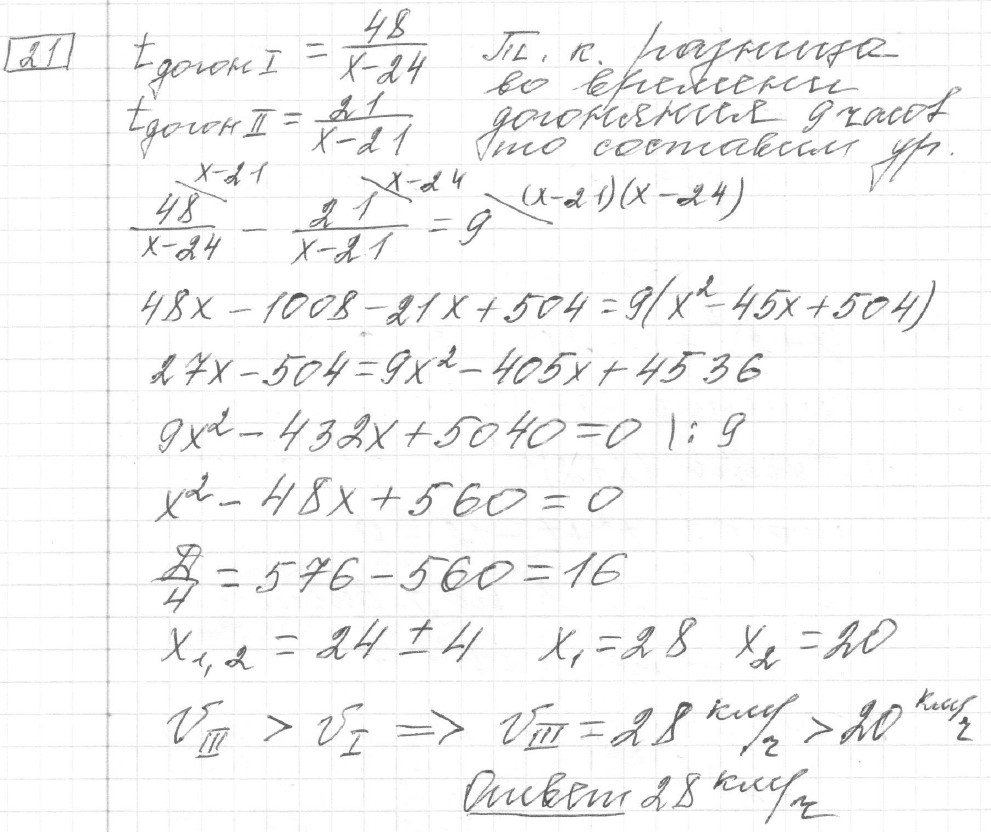 21 t догон I = 48/(x-24) Т. к. разница
во времени
t догон II = 21/(x-21) догоняния 9 часов
то составим ур.
48/(x-24) \ x-21 - 21/(x-21) \ x-24 = 9 \ (x-21)(x-24)
48x - 1008 - 21x + 504 = 9(x² - 45x + 504)
27x - 504 = 9x² - 405x + 4536
9x² - 432x + 5040 = 0 \ : 9
x² - 48x + 560 = 0
Д/4 = 576 - 560 = 16
x₁,₂ = 24 ± 4 x₁ = 28 x₂ = 20
V III > V I => V III = 28 км/ч > 20 км/ч
Ответ 28 км/ч